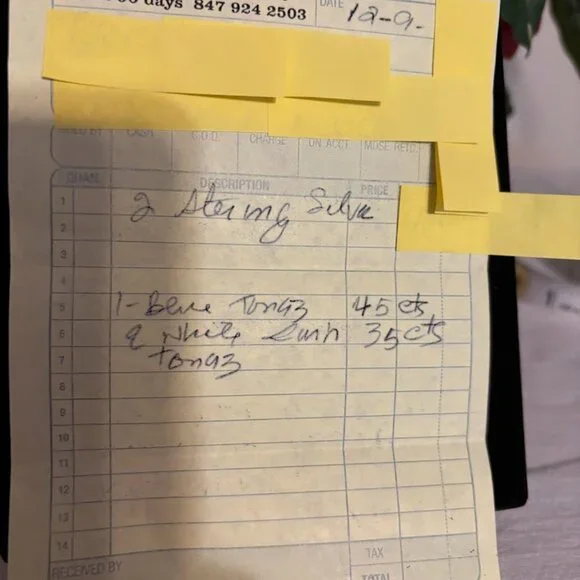 days 847 924 2503
DATE 12-9-
CASH C.O.D. CHARGE ON ACCT. MDSE RETD.
QUAN. DESCRIPTION PRICE
1
2 Sterling Silve
2
3
4
5 1- Blue Tonaz 45 cts
6 White 35 cts
7 Tonaz
8
9
10
11
12
13
14
TAX
RECEIVED BY
TOTAL